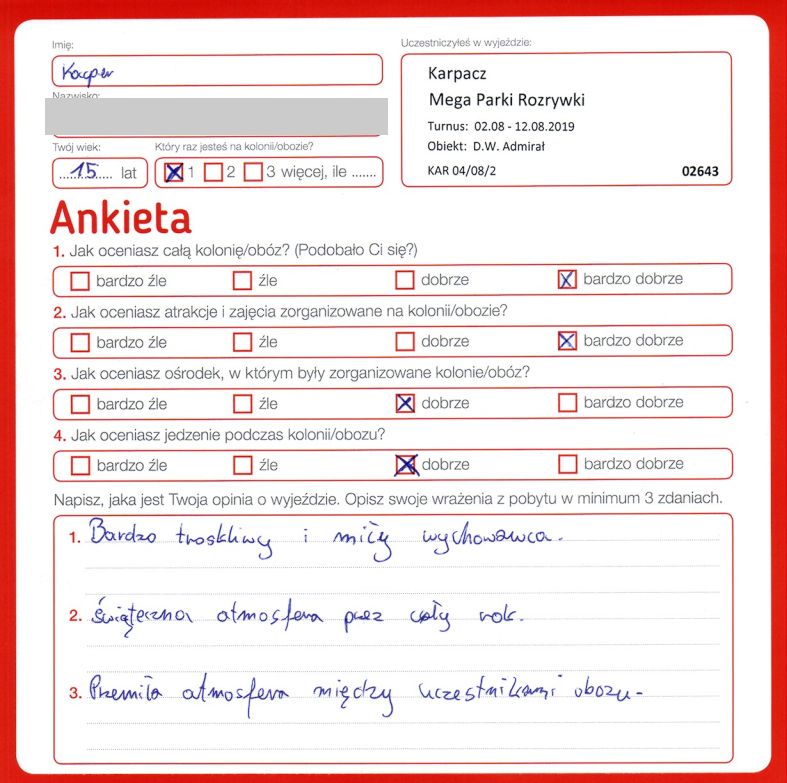 Imię:
Kacper
Nazwisko:
Uczestniczyłeś w wyjeździe:
Karpacz
Mega Parki Rozrywki
Turnus: 02.08 - 12.08.2019
Obiekt: D.W. Admirał
KAR 04/08/2
02643
Twój wiek:
15 lat
Który raz jesteś na kolonii/obozie?
1 2 3 więcej, ile .......
Ankieta
1. Jak oceniasz całą kolonię/obóz? (Podobało Ci się?)
bardzo źle źle dobrze bardzo dobrze
2. Jak oceniasz atrakcje i zajęcia zorganizowane na kolonii/obozie?
bardzo źle źle dobrze bardzo dobrze
3. Jak oceniasz ośrodek, w którym były zorganizowane kolonie/obóz?
bardzo źle źle dobrze bardzo dobrze
4. Jak oceniasz jedzenie podczas kolonii/obozu?
bardzo źle źle dobrze bardzo dobrze
Napisz, jaka jest Twoja opinia o wyjeździe. Opisz swoje wrażenia z pobytu w minimum 3 zdaniach.
1. Bardzo troskliwy i miły wychowawca.
2. Świąteczna atmosfera przez cały rok.
3. Przemiła atmosfera między uczestnikami obozu.